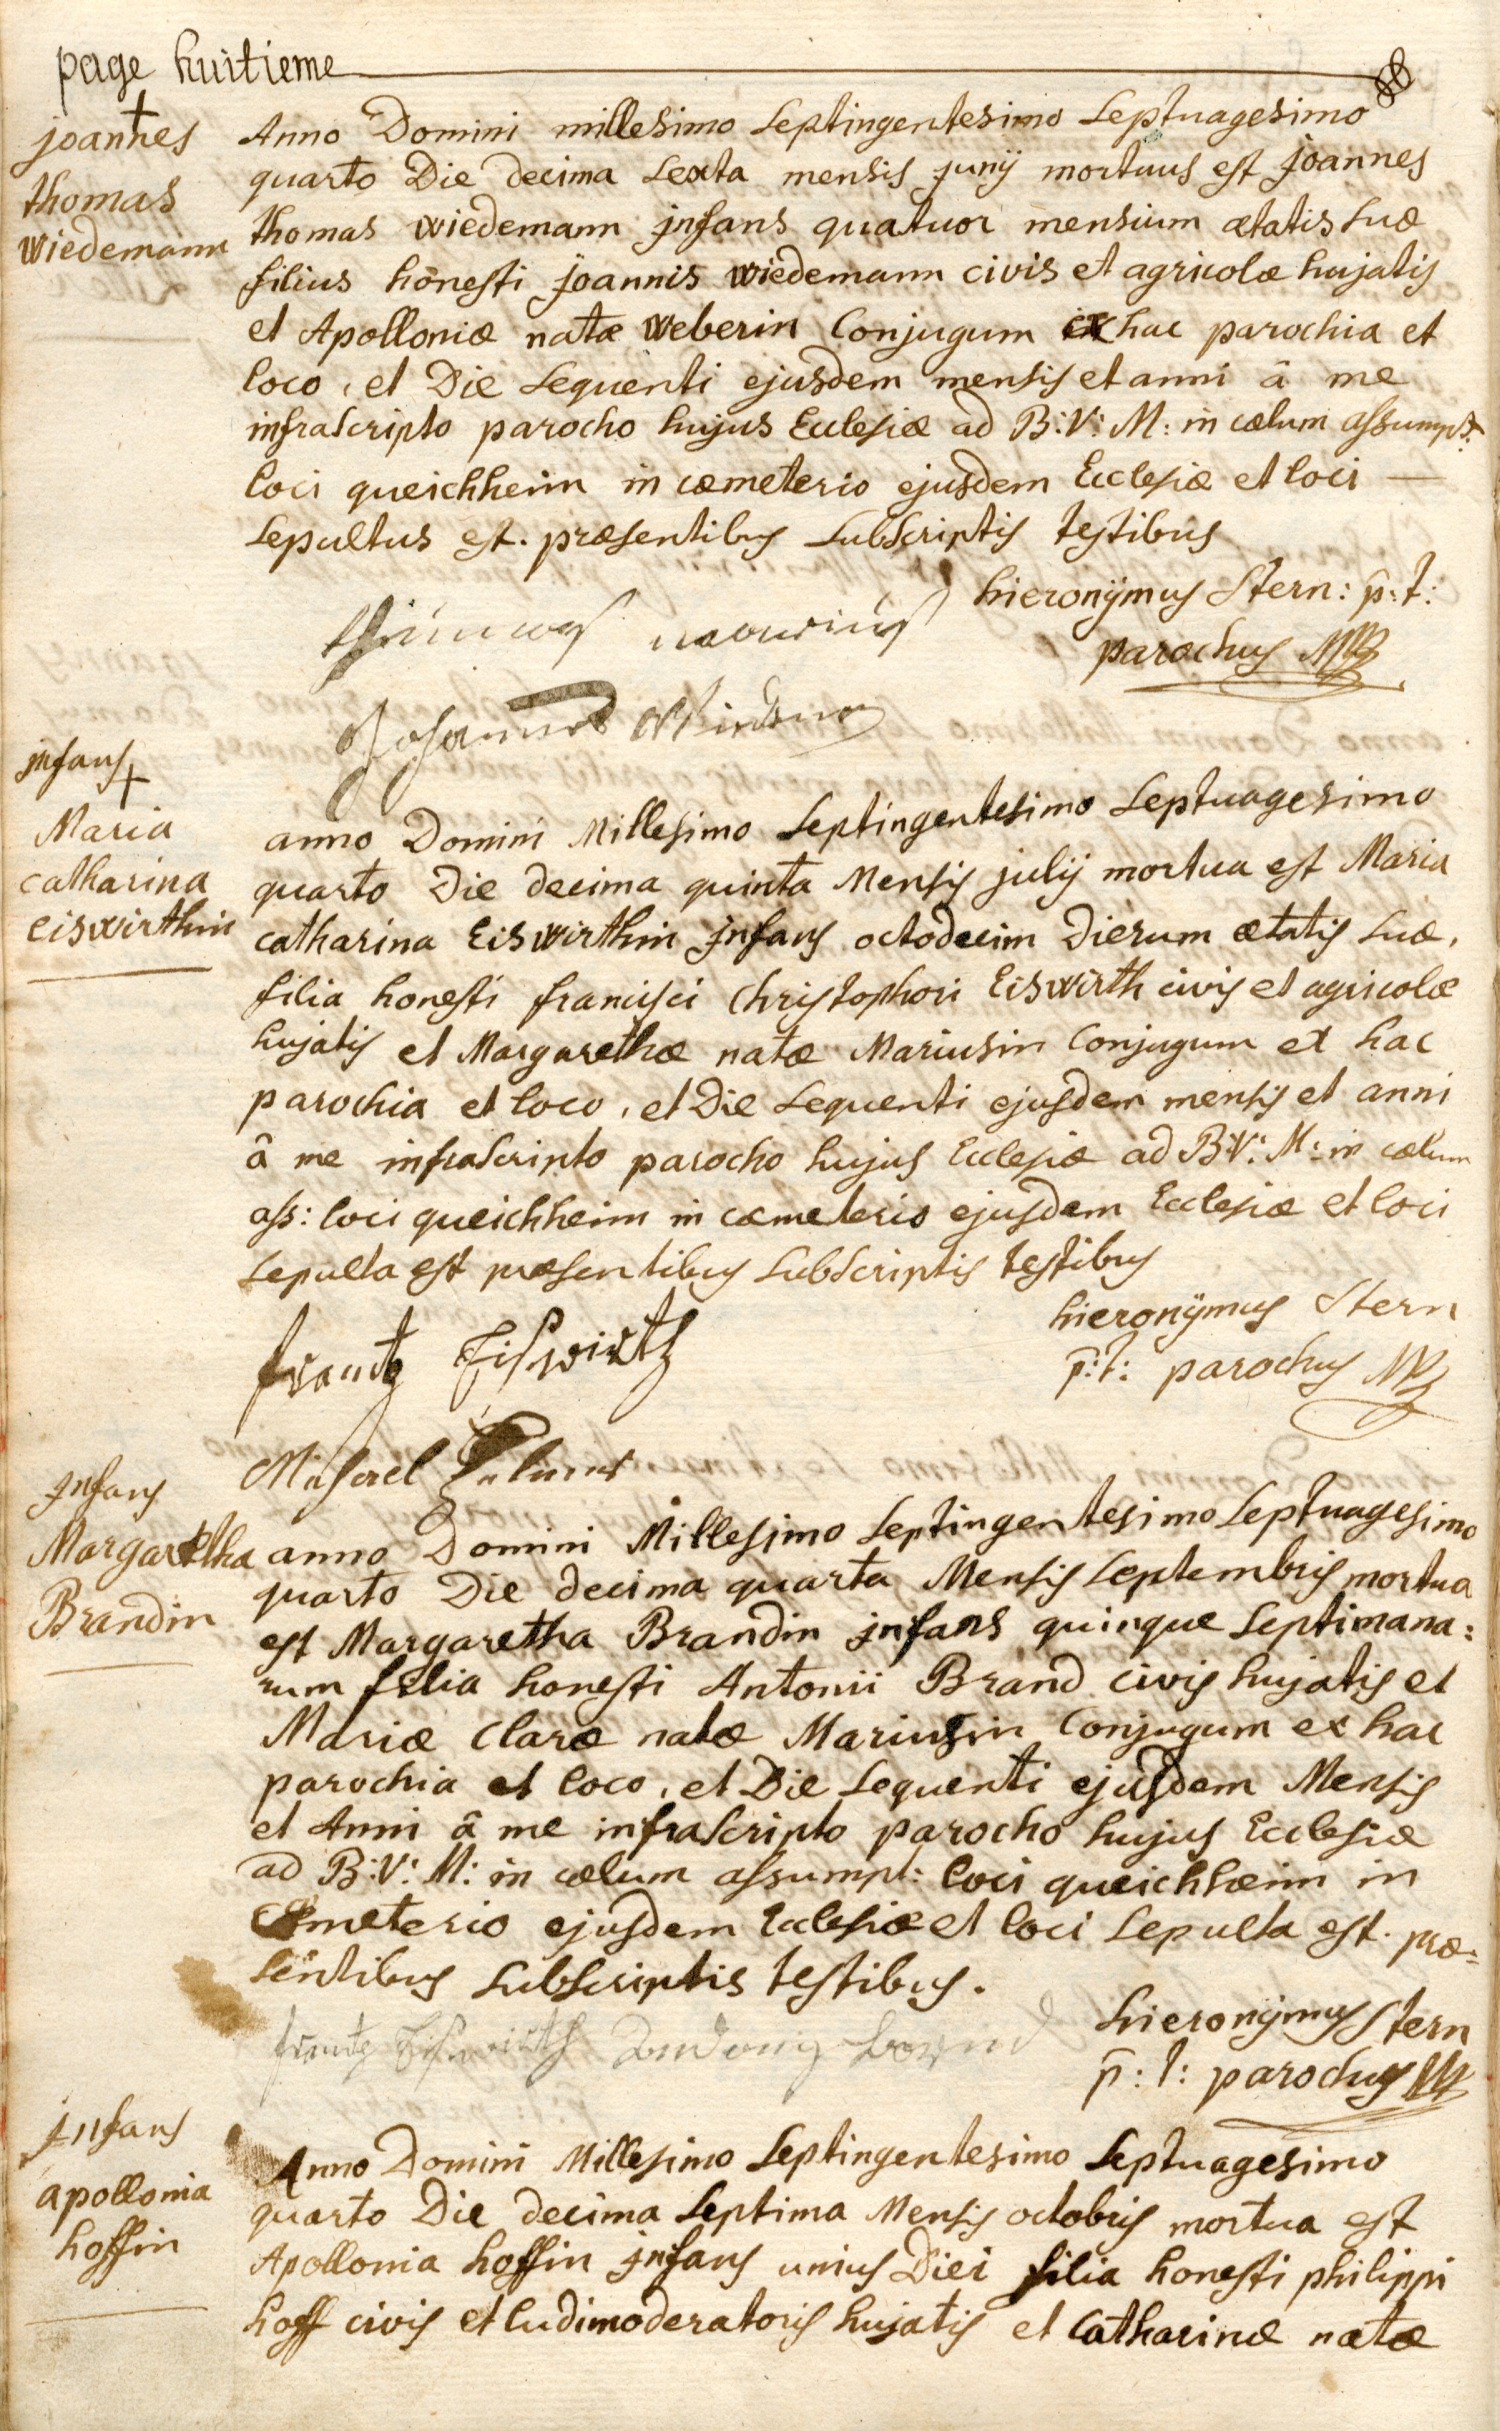 page huitieme
joannes
thomas
wiedemann
Anno Domini millesimo septingentesimo septuagesimo
quarto Die decima sexta mensis junij mortuus est joannes
thomas wiedemann jnfans quatuor mensium ætatis suæ
filius honesti joannis wiedemann civis et agricolæ hujatis
et Apolloniæ natæ weberin Conjugum ex hac parochia et
loco, et Die sequenti ejusdem mensis et anni â me
infrascripto parocho hujus Ecclesiæ ad B:V: M: in cælum assumpt:
loci queichheim in cæmeterio ejusdem Ecclesiæ et loci
sepultus est. præsentibus subscriptis testibus
hieronÿmus Stern: p:t:
parochus
jnfans
Maria
catharina
Eiswirthin
anno Domini Millesimo septingentesimo septuagesimo
quarto Die decima quinta Mensis julij mortua est Maria
catharina Eiswirthin jnfans octodecim Dierum ætatis suæ,
filia honesti francisci Christophori Eiswirth civis et agricolæ
hujatis et Margarethæ natæ Mariusin Conjugum ex hac
parochia et loco, et Die sequenti ejusdem mensis et anni
â me infrascripto parocho hujus Ecclesiæ ad B:V: M: in cælum
ass: loci queichheim in cæmeterio ejusdem Ecclesiæ et loci
sepulta est præsentibus subscriptis testibus
hieronÿmus Stern
p:t: parochus
frantz Eiswirth
jnfans
Margaretha
Brandin
anno Domini Millesimo septingentesimo septuagesimo
quarto Die decima quarta Mensis septembris mortua
est Margaretha Brandin jnfans quinque septimana:
rum filia honesti Antonii Brand civis hujatis et
Mariæ Claræ natæ Mariusin Conjugum ex hac
parochia et loco, et Die sequenti ejusdem Mensis
et Anni â me infrascripto parocho hujus Ecclesiæ
ad B:V: M: in cælum assumpt: loci queichheim in
cæmeterio ejusdem Ecclesiæ et loci sepulta est. præ-
sentibus subscriptis testibus.
hieronÿmus Stern
p:t: parochus
frantz Eiswirth
jnfans
apollonia
hoffin
Anno Domini Millesimo septingentesimo septuagesimo
quarto Die decima septima Mensis octobris mortua est
Apollonia hoffin jnfans unius Diei filia honesti philippi
hoff civis et ludimoderatoris hujatis et Catharinæ natæ